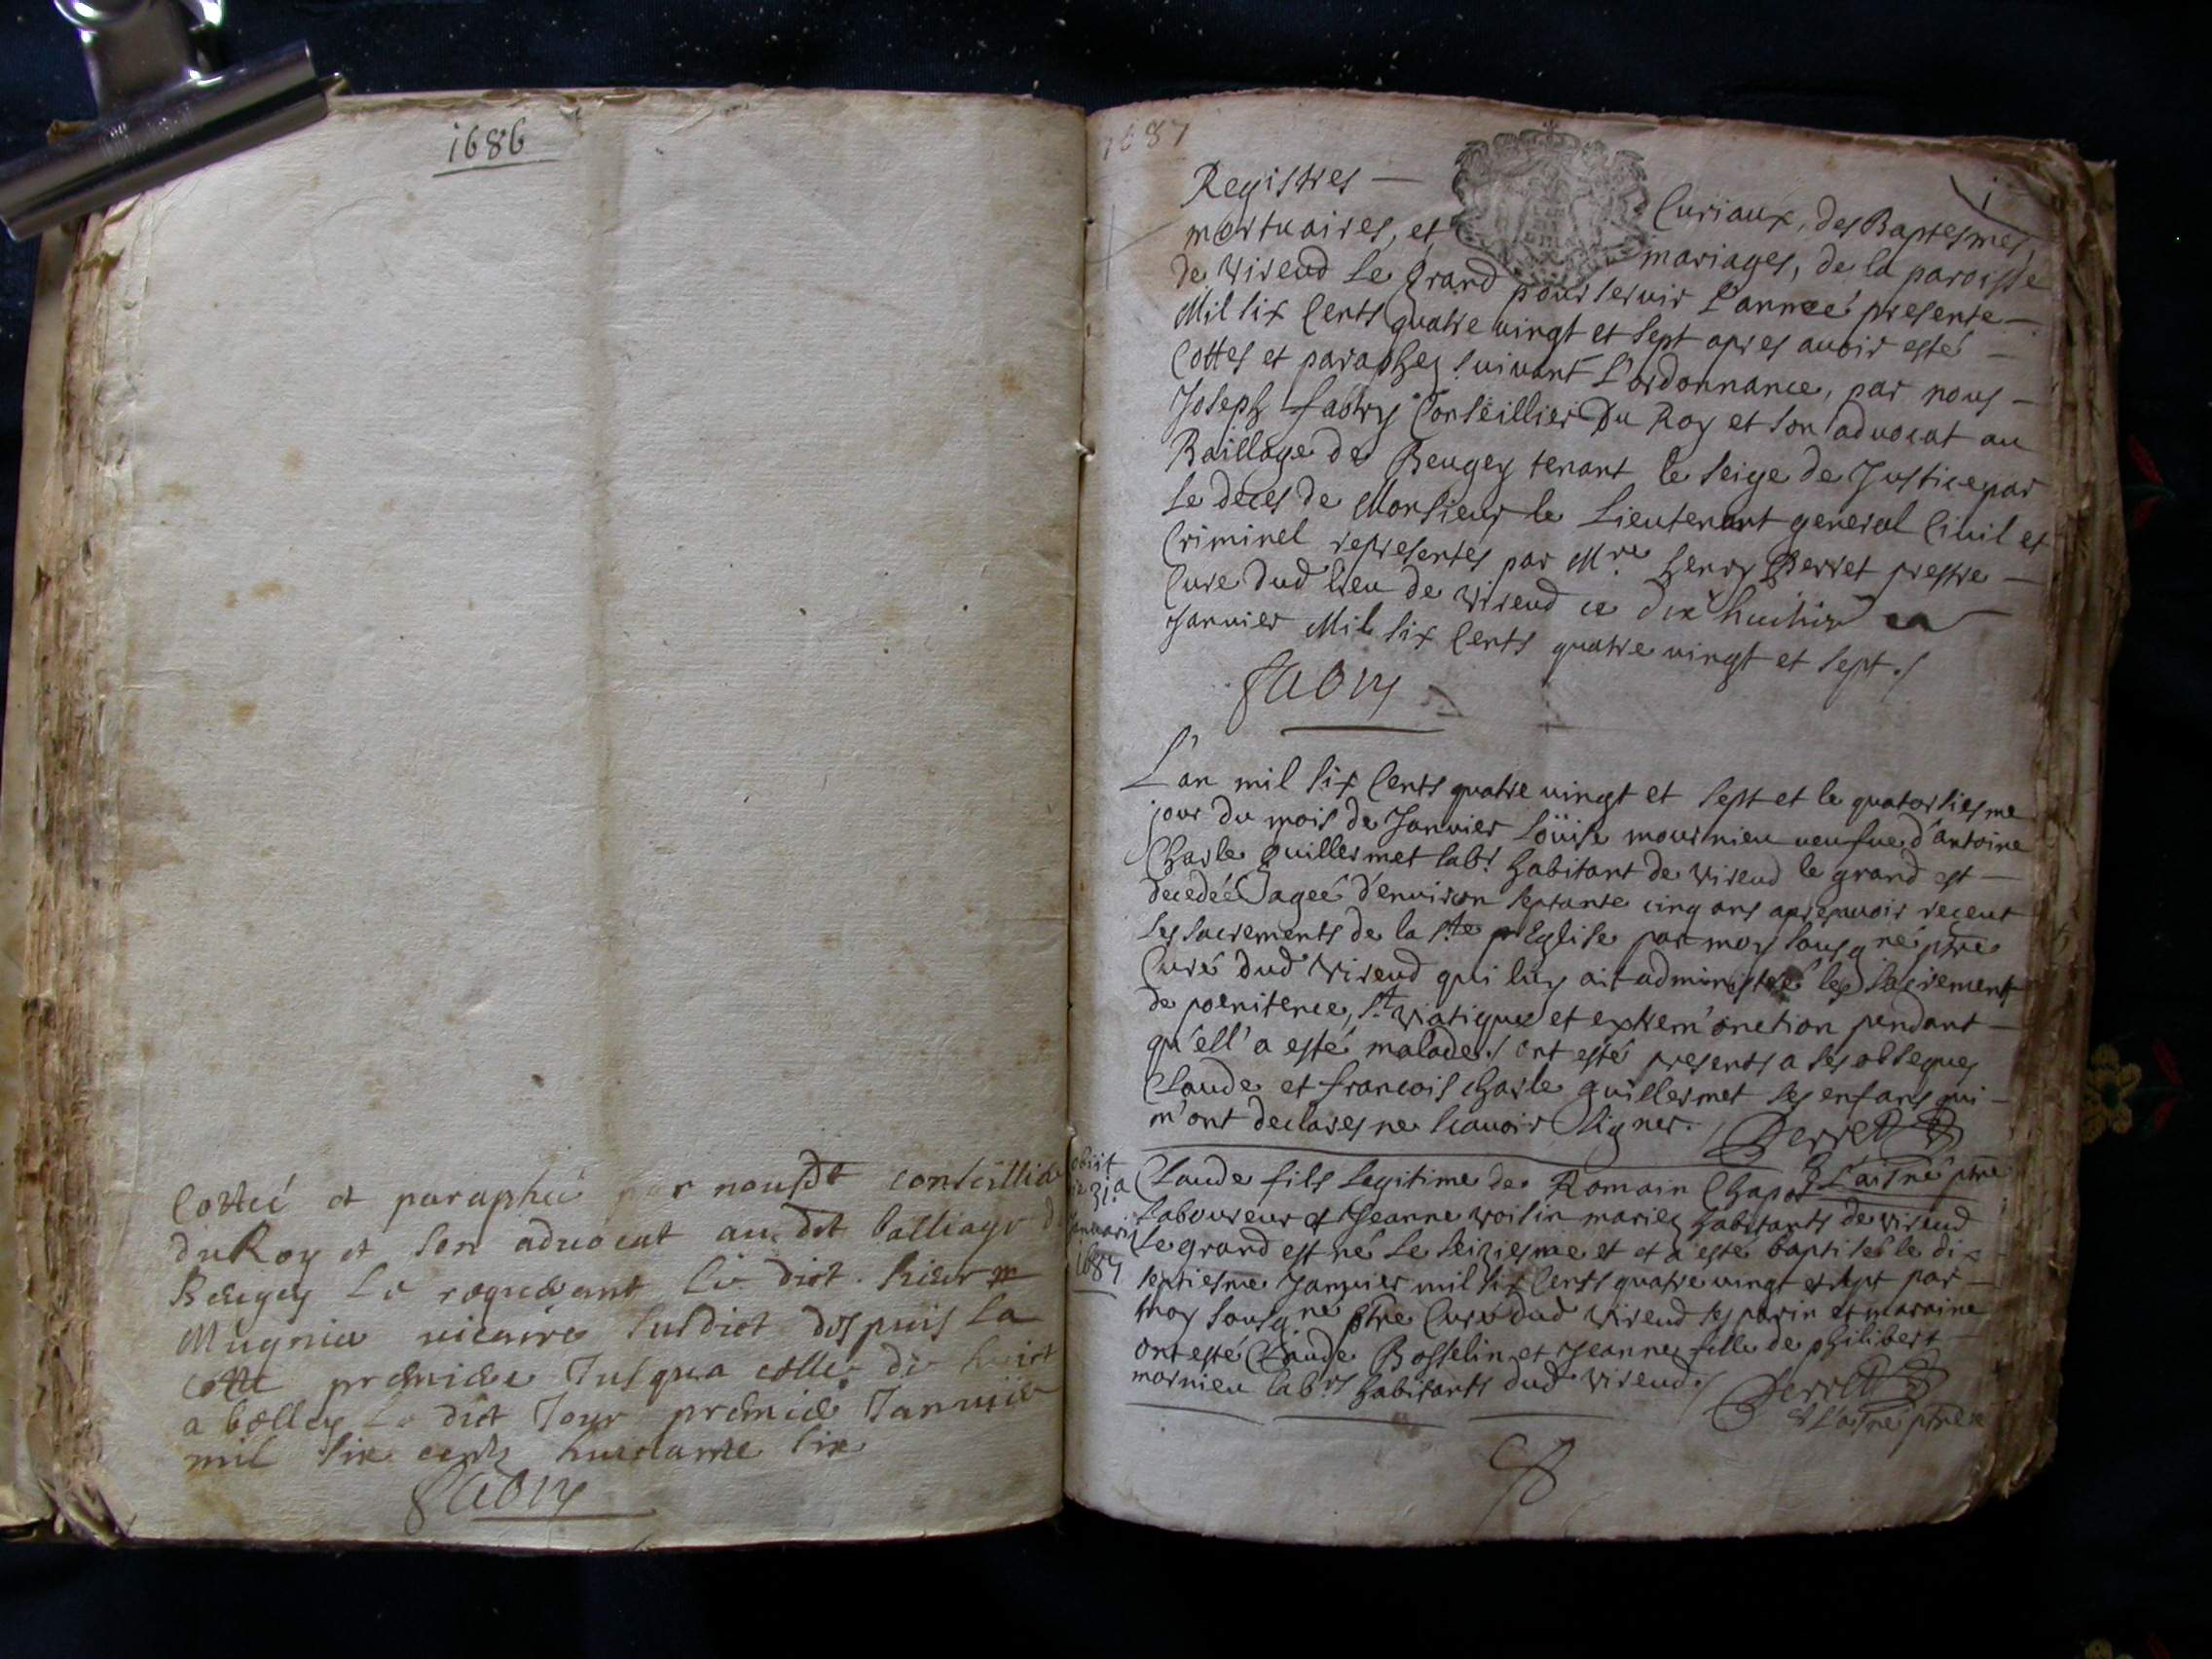 1686
Cottéé et paraphéé par nousdt conseillier
du Roy et son advocat au dit balliage d
Beugey le requerant le dict sieur
Mugnier vicaire susdict despuis la
cotte premiere Jusqua celle de huict
a belley le dict Jour premier Januier
mil six cents huictante six
fabry
1687
i
Registres — Curiaux, des Baptesmes,
mortuaires, et mariages, de la paroisse
de virieud le grand pour seruir l'anneé presente —
Mil six Cents quatre uingt et sept apres auoir esté —
Cottes et paraphez suiuant L'ordonnance, par nous —
Joseph fabry Conseillier Du Roy et son aduocat au
Baillage de Beugey tenant le seige de Justice par
Le deces de Monsieur le Lieutenant general Ciuil et
Criminel representes par Mre henry Perret prestre —
Cure dud lieu de virieud ce dix huitir
Januier Mil six Cents quatre uingt et sept ./
fabry
L'an mil six Cents quatre uingt et sept et le quatorsiesme
jour du mois de Januier Loüise mournieu ueufue d'antoine
Charle guillermet labr habitant de virieud le grand est —
decedéé agéé d'enuiron septante cinq ans apres auoir receut
Les sacrements de la ste Eglise par moy sousgné ptre
Curé dud virieud qui luy ait administré les sacrements
de poenitence, st viatique et extrem'onction pendant —
qu'ell'a esté malade ./ ont esté presents a ses obseques
Claude et francois charle guillermet ses enfans qui —
m'ont declares ne scauoir signer. / Perret
L'aisné ptre
obiit
die 31a
Januarii
1687
Claude fils legitime de Romain Chapot
Laboureur et Jeanne voisin mariez habitants de virieud
Le grand est né le seiziesme et et a esté baptisé le dix
septiesme Januier mil six Cents quatre uingt et sept par —
moy sousgné ptre Curé dud virieud ses parin et maraine
ont esté Claude Bosselin et Jeanne fille de philibert
mornieu labrs habitants dud virieud ./ Perret
L'aisné ptre